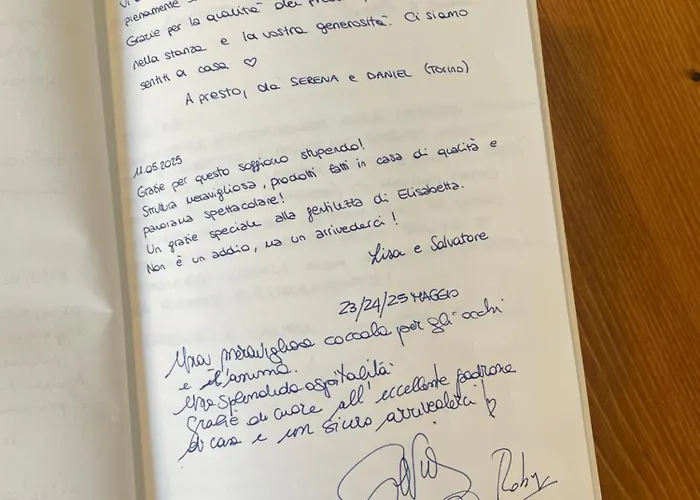 pienamente
Grazie per la qualità dei
nella stanza e la vostra generosità. Ci siamo
sentiti a casa ♡
A presto, da SERENA e DANIEL (TORINO)
11.05.2025
Grazie per questo soggiorno stupendo!
Struttura meravigliosa, prodotti fatti in casa di qualità e
panorama spettacolare!
Un grazie speciale alla gentilezza di Elisabetta.
Non è un addio, ma un arrivederci!
Lisa e Salvatore
23/24/25 MAGGIO
Una meravigliosa coccola per gli occhi
e l'anima.
Una splendida ospitalità.
Grazie di cuore all'eccellente padrona
di casa e un sicuro arrivederci
Roby